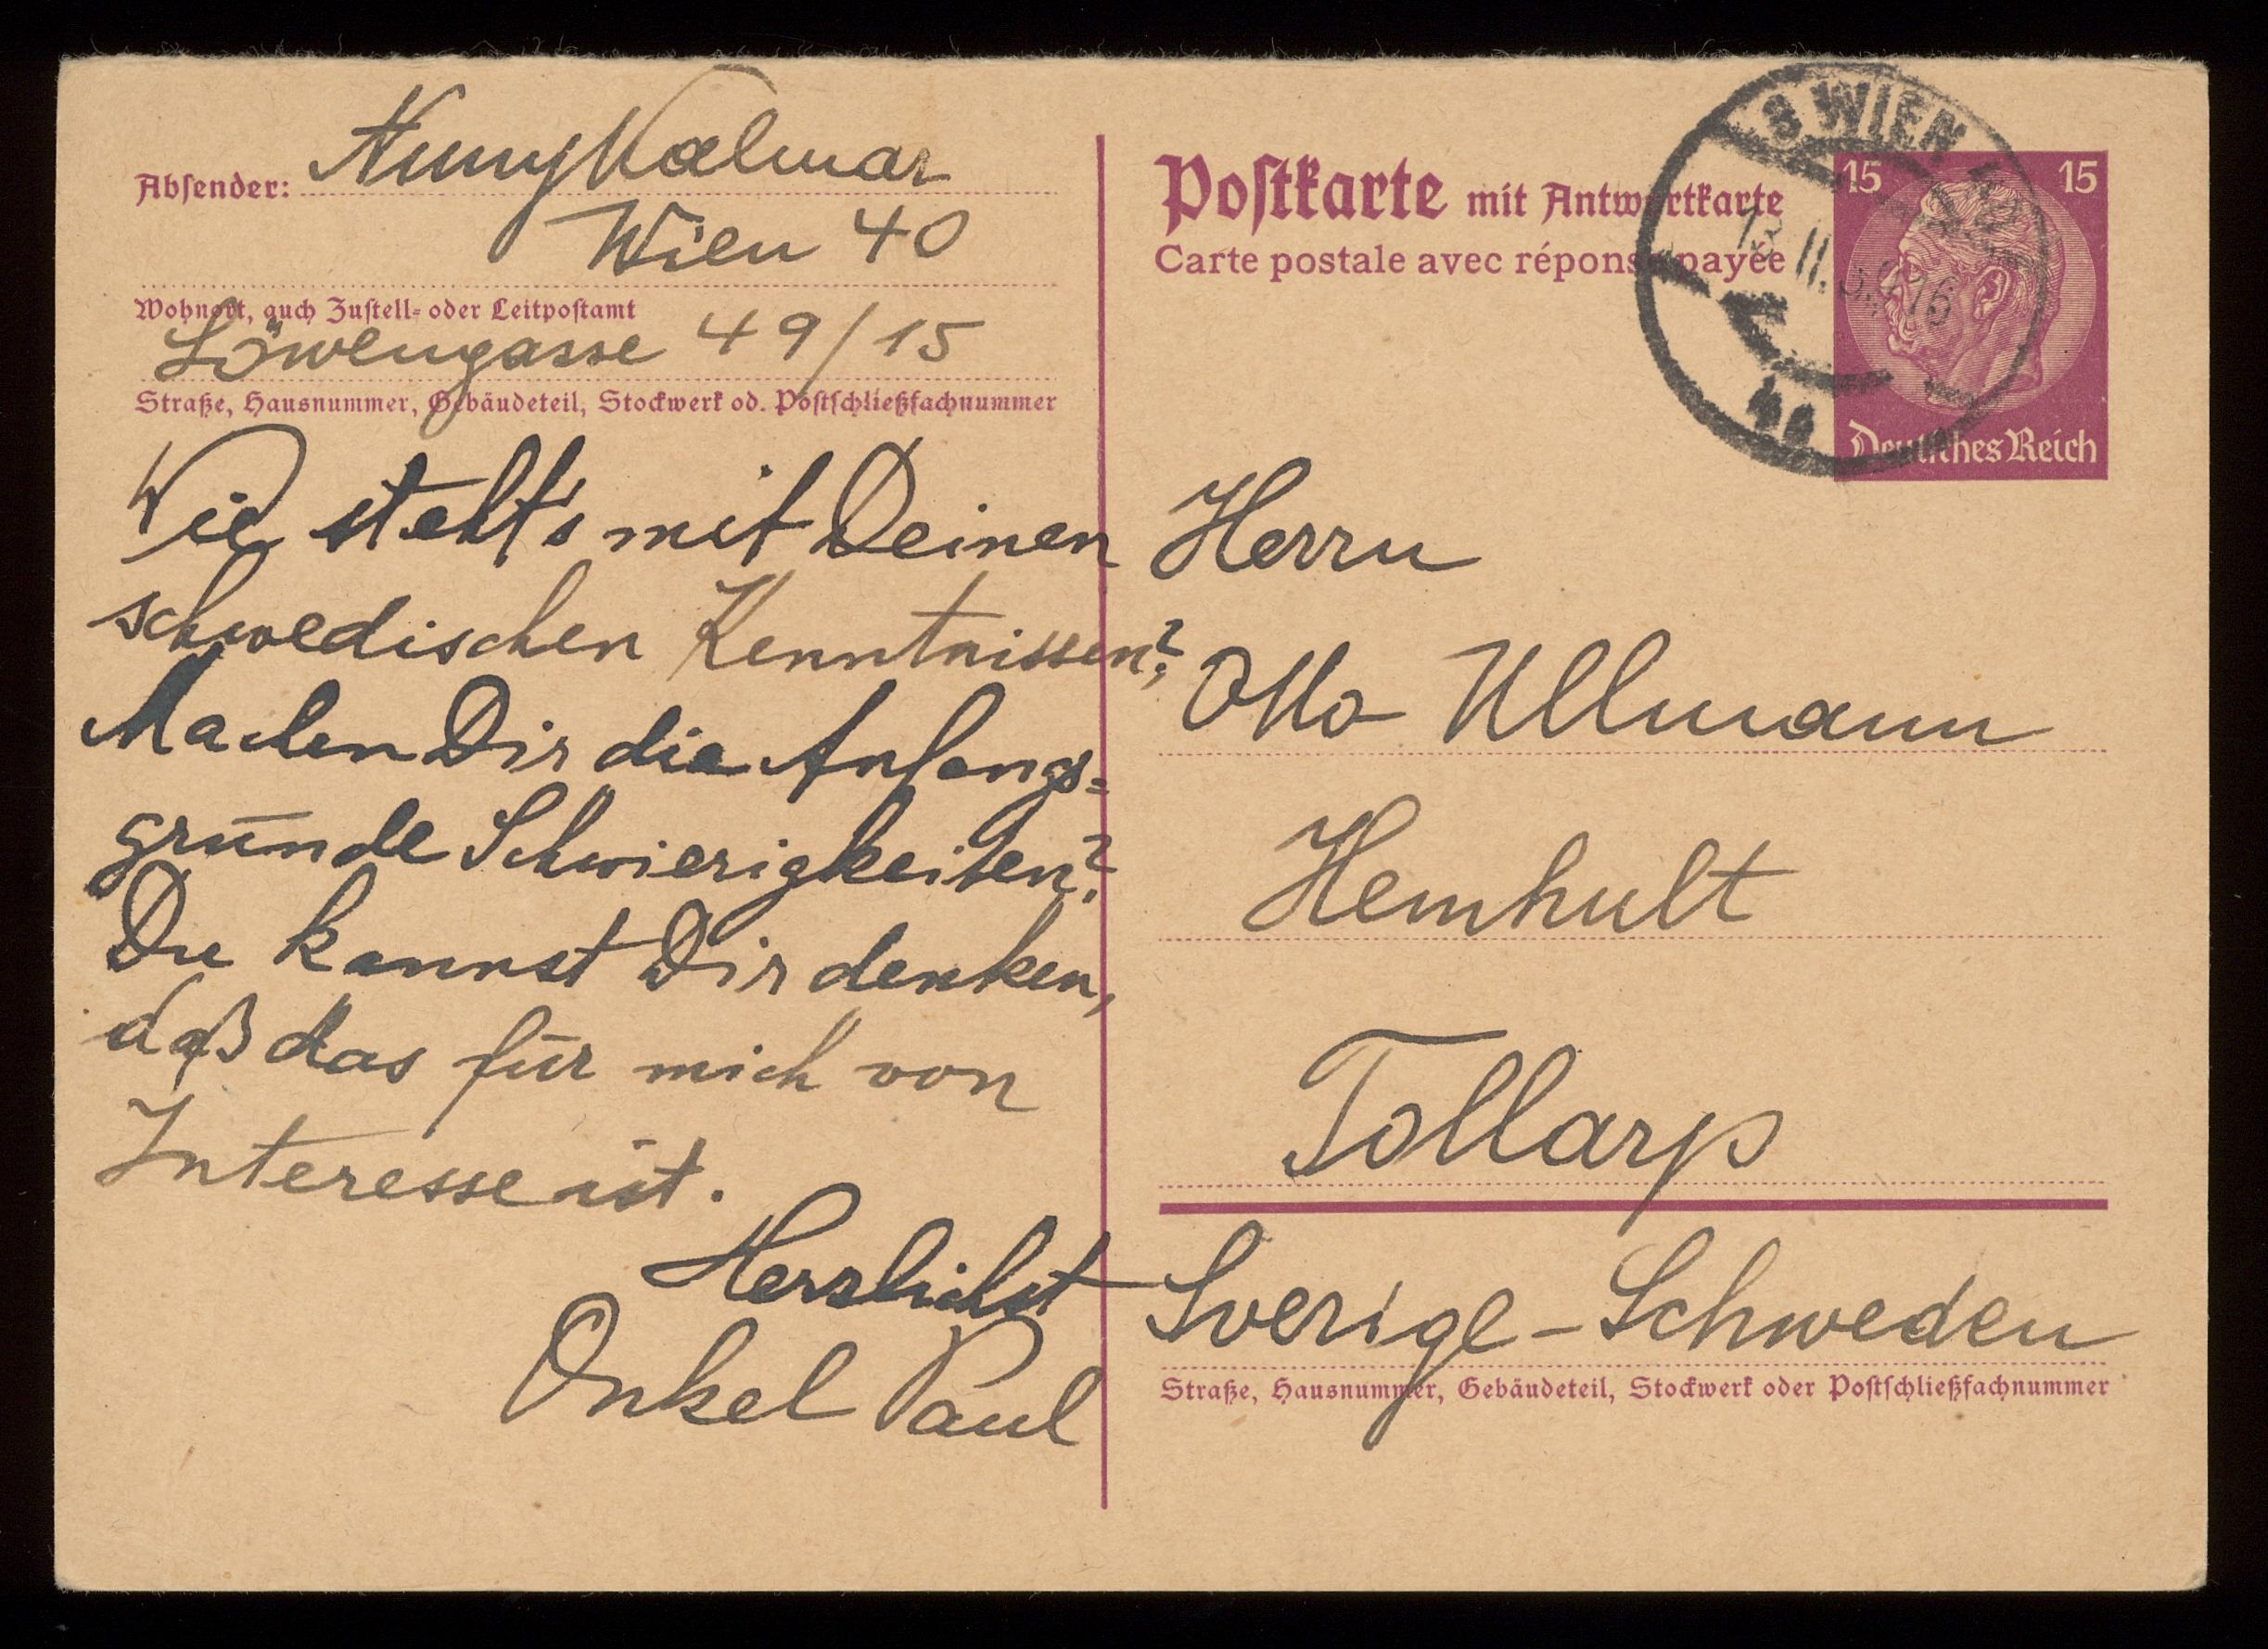 Absender: Nuny Kalmar
Wien 40
Wohnort, auch Zustell- oder Leitpostamt
Löwengasse 49/15
Straße, Hausnummer, Gebäudeteil, Stockwerk od. Postschließfachnummer
Wie steht's mit Deinen
schwedischen Kenntnissen?
Machen Dir die Anfangs=
gründe Schwierigkeiten?
Du kannst Dir denken,
daß das für mich von
Interesse ist.
Herzlichst
Onkel Paul
Postkarte mit Antwortkarte
Carte postale avec réponse payée
WIEN
15 15
Deutsches Reich
Herrn
Otto Ullmann
Hemhult
Tollarp
Sverige-Schweden
Straße, Hausnummer, Gebäudeteil, Stockwerk oder Postschließfachnummer